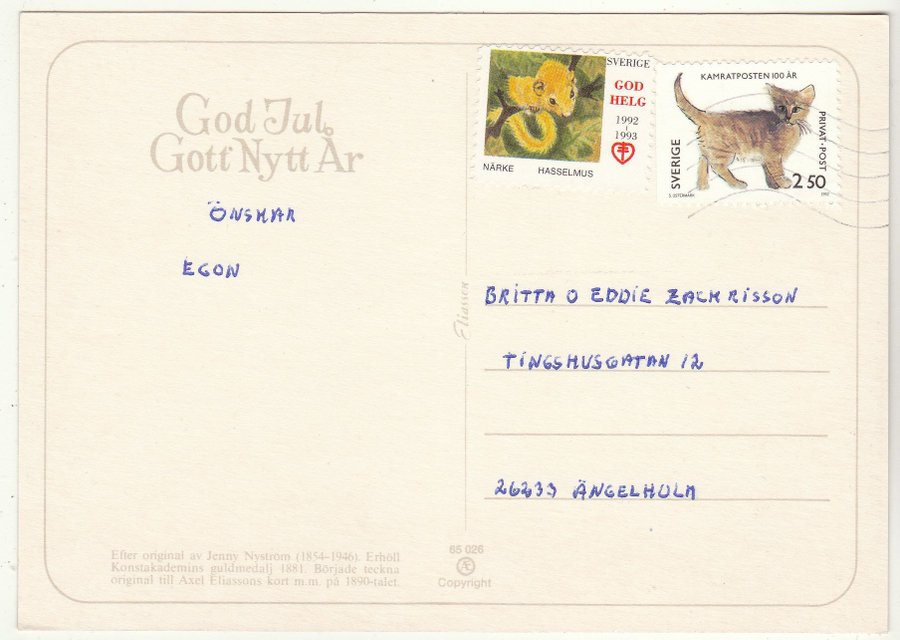 God Jul
Gott Nytt År
ÖNSKAR
EGON
Efter original av Jenny Nyström (1854–1946). Erhöll
Konstakademins guldmedalj 1881. Började teckna
original till Axel Eliassons kort m.m. på 1890-talet.
Eliasson
65 026
Copyright
SVERIGE
GOD
HELG
1992
-
1993
NÄRKE HASSELMUS
KAMRATPOSTEN 100 ÅR
SVERIGE
PRIVAT-POST
2 50
S. ÖSTERMARK 1992
BRITTA O EDDIE ZACKRISSON
TINGSHUSGATAN 12
26233 ÄNGELHOLM